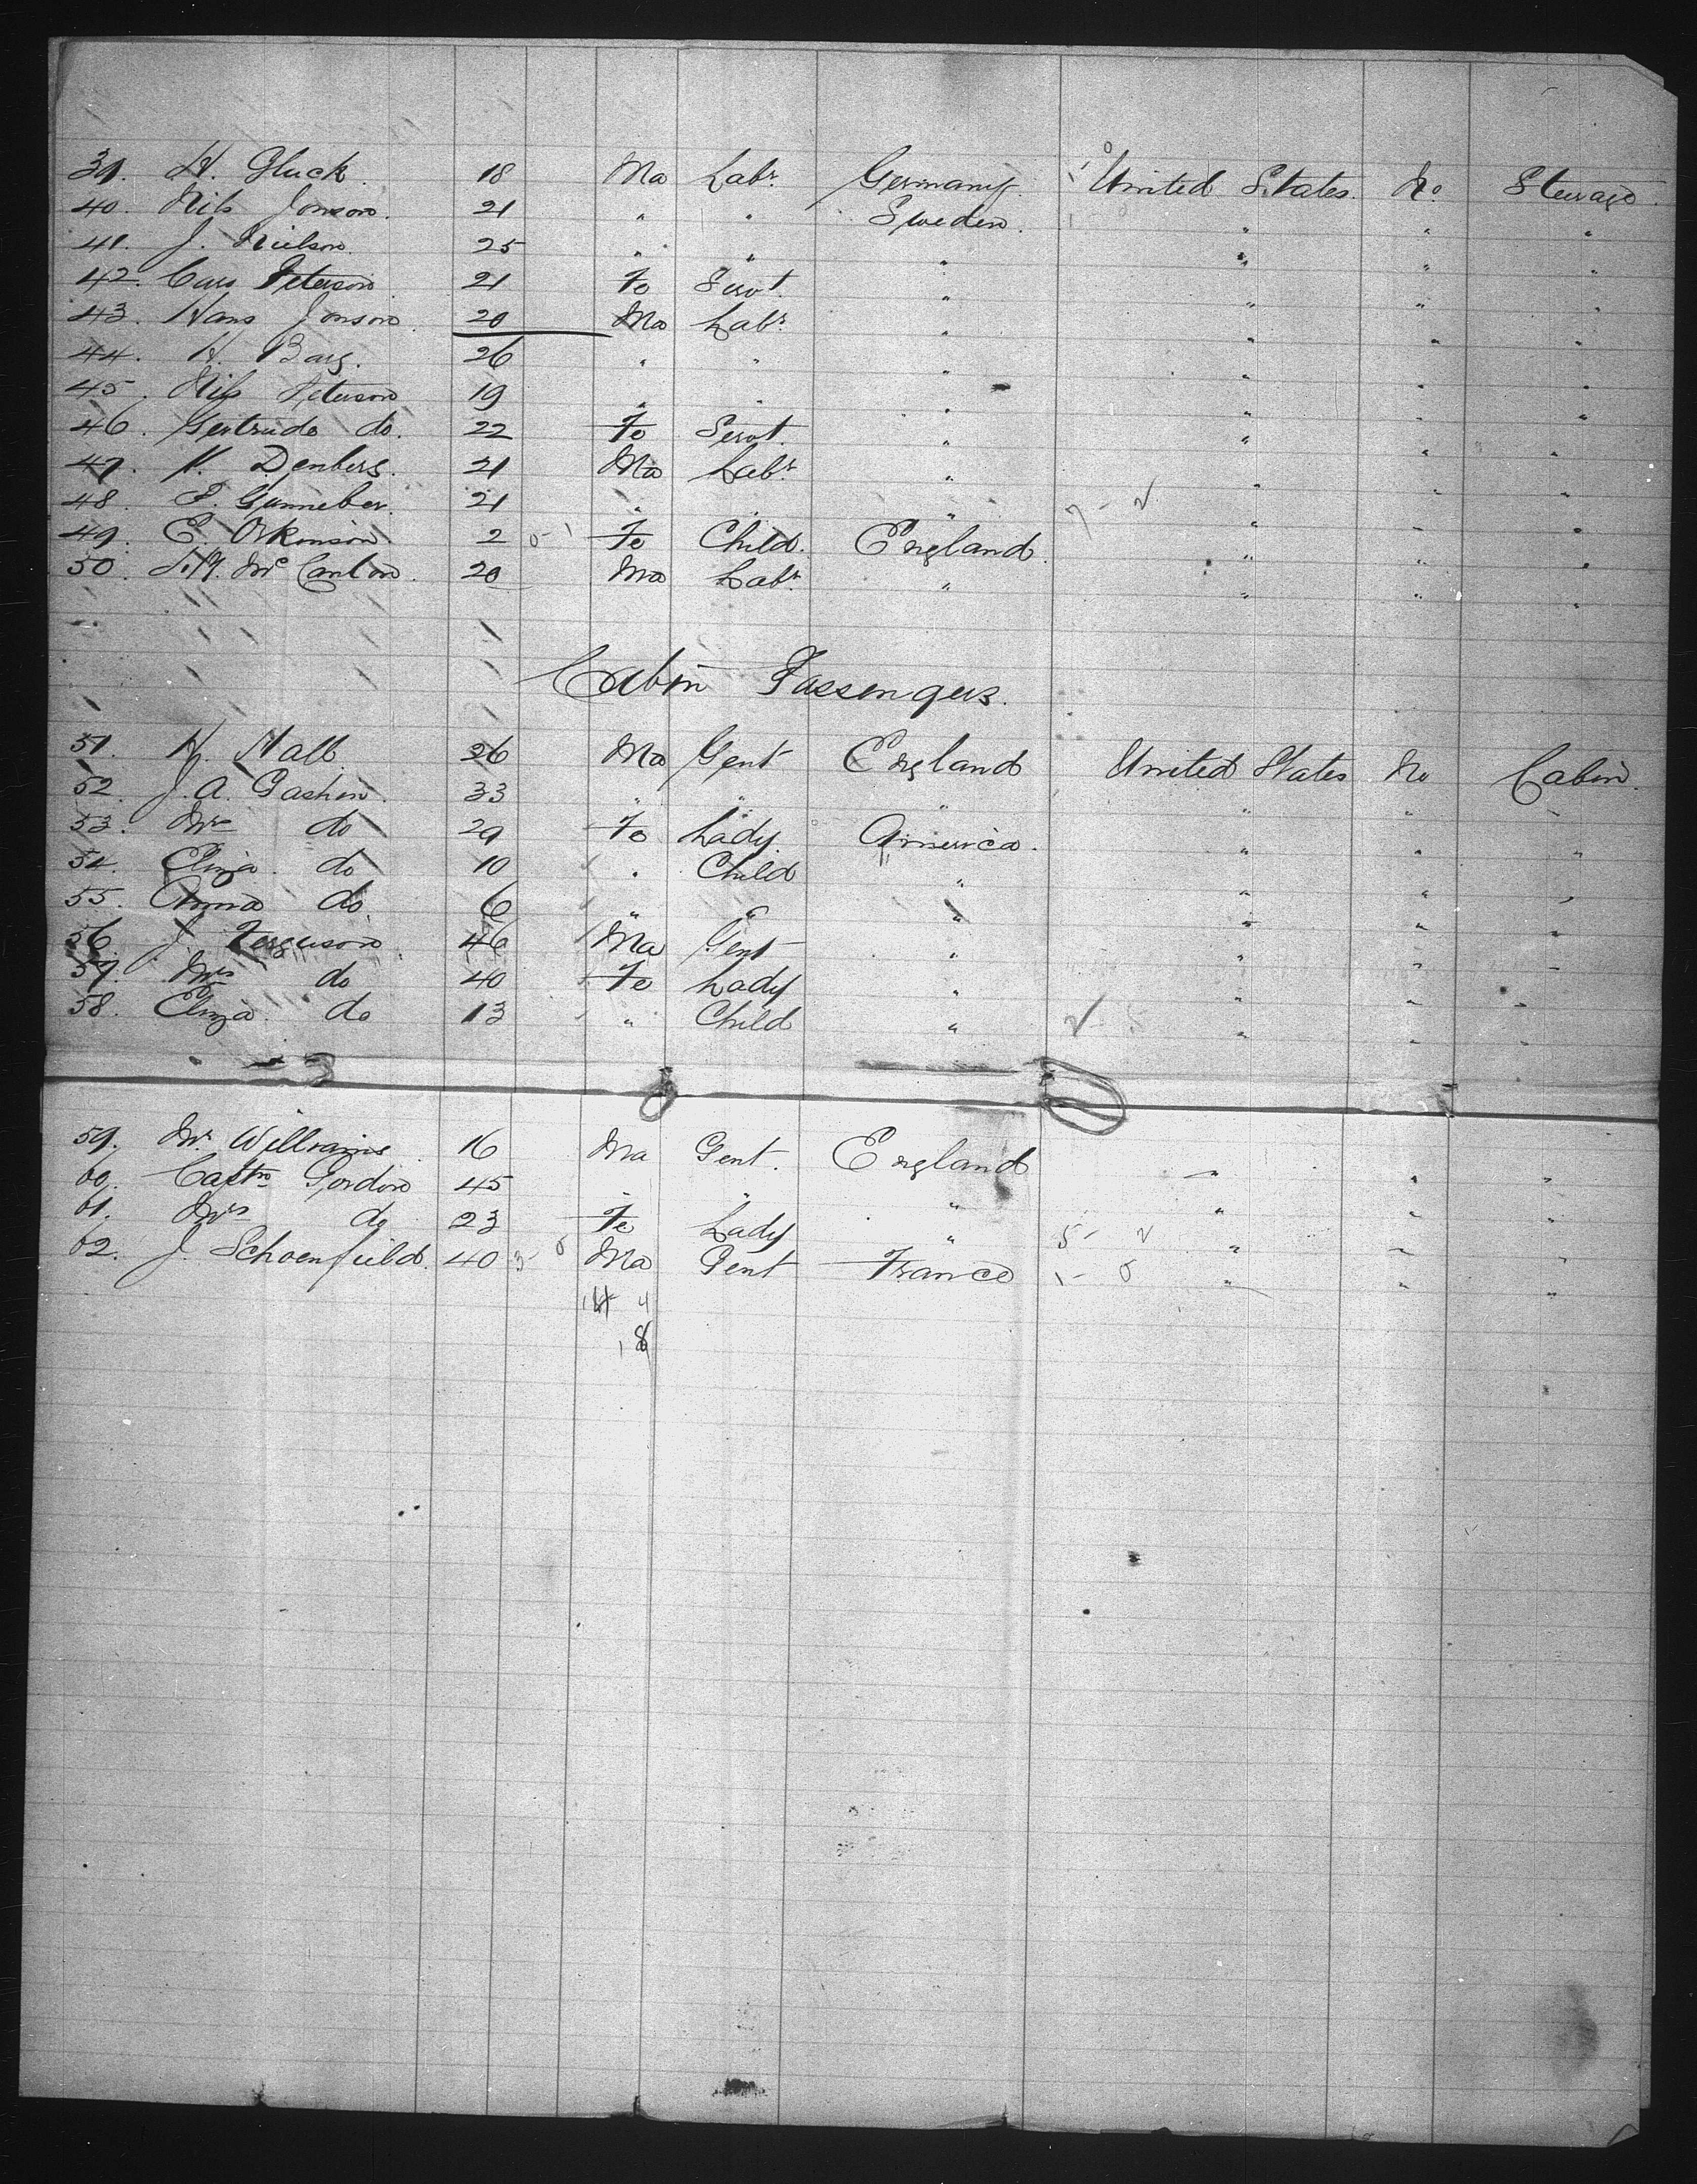 39. H. Gluck. 18 Ma Labr. Germany. United States. No. Steerage.
40. Nils Jonson. 21 " " Sweden. " " "
41. J. Nielson. 25 " " " " " "
42. Peterson 21 Fe Servt. " " " "
43. Hans Jonson. 20 Ma Labr. " " " "
44. H. Barg. 26 " " " " " "
45. Nils Peterson 19 " " " " " "
46. Gertrude do. 22 Fe Servt. " " " "
47. N. Denberg. 21 Ma Labr. " " " "
48. F. Gunneber. 21 " " " " " "
49. E. 2 Fe Child. England. " " "
50. Mc 20 Ma Labr. " " " "
Cabin Passengers.
51. H. Hall. 26 Ma Gent England United States No Cabin.
52. J. A. 33 " " " " " "
53. Mrs do 29 Fe Lady. America. " " "
54. Eliza do 10 " Child " " " "
55. Anna do 6 " " " " " "
56. J. Ferguson 46 Ma Gent " " " "
57. Mrs do 40 Fe Lady " " " "
58. Eliza do 13 " Child " " " "
59. Mr. Williams 16 Ma Gent. England " " "
60. Captn Gordon 45 " " " " " "
61. Mrs do 23 Fe Lady " " " "
62. J Schoenfield. 40 Ma Gent France " " "